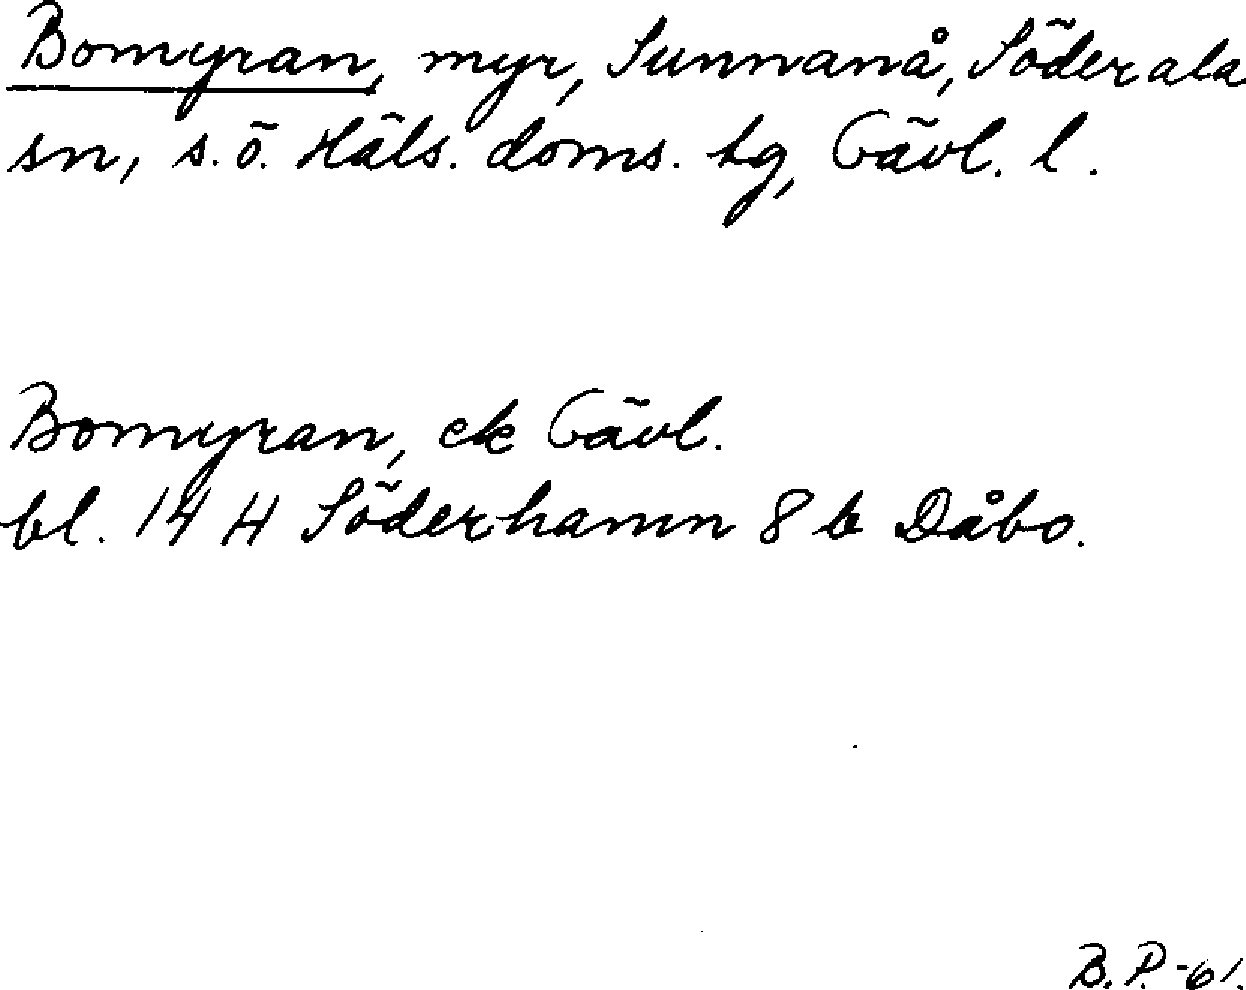 Bomyran, myr, Sunnanå, Söderala
sn, s. ö. Häls. doms. tg, Gävl. l.
Bomyran, ek Gävl.
bl. 14 H Söderhamn 8 b Dåbo.
B. P. -61.